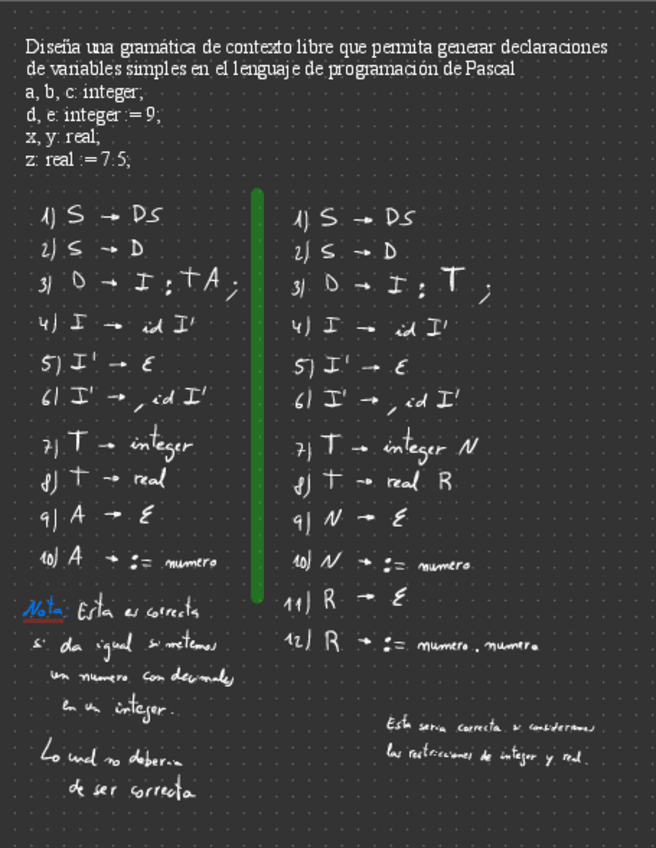 Diseña una gramática de contexto libre que permita generar declaraciones
de variables simples en el lenguaje de programación de Pascal
a, b, c: integer;
d, e: integer := 9;
x, y: real;
z: real := 7.5;
1) S → DS
2) S → D
3) D → I : T A ;
4) I → id I'
5) I' → ε
6) I' → , id I'
7) T → integer
8) T → real
9) A → ε
10) A → := numero
Nota: Esta es correcta
si da igual si metemos
un numero con decimales
en un integer.
Lo cual no deberia
de ser correcta
1) S → DS
2) S → D
3) D → I : T ;
4) I → id I'
5) I' → ε
6) I' → , id I'
7) T → integer N
8) T → real R
9) N → ε
10) N → := numero
11) R → ε
12) R → := numero . numero
Esta seria correcta si consideramos
las restricciones de integer y real.